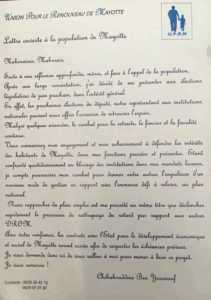 UNION POUR LE RENOUVEAU DE MAYOTTE
U.P.R.M
Lettre ouverte à la population de Mayotte
Mahoraises, Mahorais,
Suite à une réflexion approfondie, mûrie, et face à l'appel de la population,
Après une longue concertation, j'ai décidé de me présenter aux élections
législatives de juin prochain, dans l'intérêt général.
En effet, les prochaines élections de député, notre représentant aux institutions
nationales peuvent nous offrir l'occasion de retrouver l'espoir.
Malgré quelques avancées, le combat pour la retraite, le foncier et la fiscalité
continue.
Vous connaissez mon engagement et mon acharnement à défendre les intérêts
des habitants de Mayotte, dans mes fonctions passées et présentes. Etant
confronté quotidiennement au blocage des institutions dans mes mandats locaux,
je compte poursuivre mon combat pour donner entre autres l'impulsion d'un
nouveau mode de gestion en rapport avec immenses défis à relever, au plan
national.
Nous rapprocher du plus simple est ma priorité au même titre que déclencher
rapidement le processus de rattrapage du retard par rapport aux autres
DROM.
Avec votre confiance, les contrats avec l'Etat pour le développement économique
et social de Mayotte seront suivis afin de respecter les échéances prévues.
Je vous demande donc ici de vous rallier à moi pour mener à bien ce projet.
Je vous remercie !
Chihaboudine Ben Youssouf
Contacts : 0639